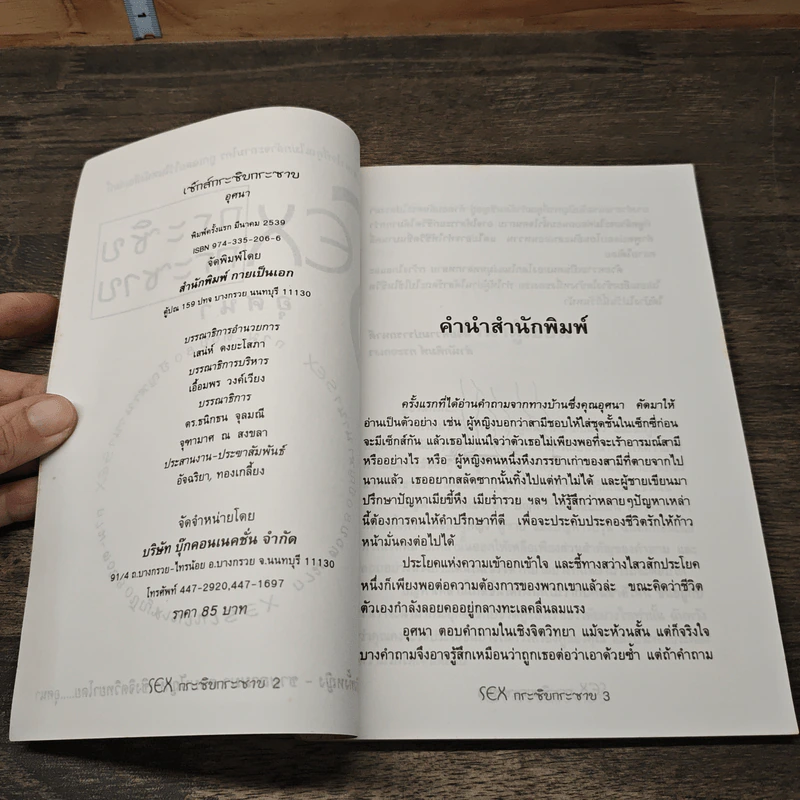 เซ็กส์กระซิบกระซาบ
อุศนา
พิมพ์ครั้งแรก มีนาคม 2539
ISBN 974-335-206-6
จัดพิมพ์โดย
สำนักพิมพ์ กายเป็นเอก
ตู้ปณ 159 ปทจ บางกรวย นนทบุรี 11130
บรรณาธิการอำนวยการ
เสน่ห์ คงยะโสภา
บรรณาธิการบริหาร
เอื้อมพร วงค์เวียง
บรรณาธิการ
ดร.ธนิกธน จุลมณี
จุฑามาศ ณ สงขลา
ประสานงาน-ประชาสัมพันธ์
อัจฉริยา, ทองเกลี้ยง
จัดจำหน่ายโดย
บริษัท บุ๊กคอนเนคชั่น จำกัด
91/4 ถ.บางกรวย-ไทรน้อย อ.บางกรวย จ.นนทบุรี 11130
โทรศัพท์ 447-2920,447-1697
ราคา 85 บาท
SEX กระซิบกระซาบ 2
คำนำสำนักพิมพ์
ครั้งแรกที่ได้อ่านคำถามจากทางบ้านซึ่งคุณอุศนา คัดมาให้
อ่านเป็นตัวอย่าง เช่น ผู้หญิงบอกว่าสามีชอบให้ใส่ชุดชั้นในเซ็กซี่ก่อน
จะมีเซ็กส์กัน แล้วเธอไม่แน่ใจว่าตัวเธอไม่เพียงพอที่จะเร้าอารมณ์สามี
หรืออย่างไร หรือ ผู้หญิงคนหนึ่งหึงภรรยาเก่าของสามีที่ตายจากไป
นานแล้ว เธออยากสลัดซากนั้นทิ้งไปแต่ทำไม่ได้ และผู้ชายเขียนมา
ปรึกษาปัญหาเมียขี้หึง เมียร่ำรวย ฯลฯ ให้รู้สึกว่าหลายๆปัญหาเหล่า
นี้ต้องการคนให้คำปรึกษาที่ดี เพื่อจะประคับประคองชีวิตรักให้ก้าว
หน้ามั่นคงต่อไปได้
ประโยคแห่งความเข้าอกเข้าใจ และชี้ทางสว่างไสวสักประโยค
หนึ่งก็เพียงพอต่อความต้องการของพวกเขาแล้วล่ะ ขณะคิดว่าชีวิต
ตัวเองกำลังลอยคออยู่กลางทะเลคลื่นลมแรง
อุศนา ตอบคำถามในเชิงจิตวิทยา แม้จะห้วนสั้น แต่ก็จริงใจ
บางคำถามจึงอาจรู้สึกเหมือนว่าถูกเธอต่อว่าเอาด้วยซ้ำ แต่ถ้าคำถาม
SEX กระซิบกระซาบ 3